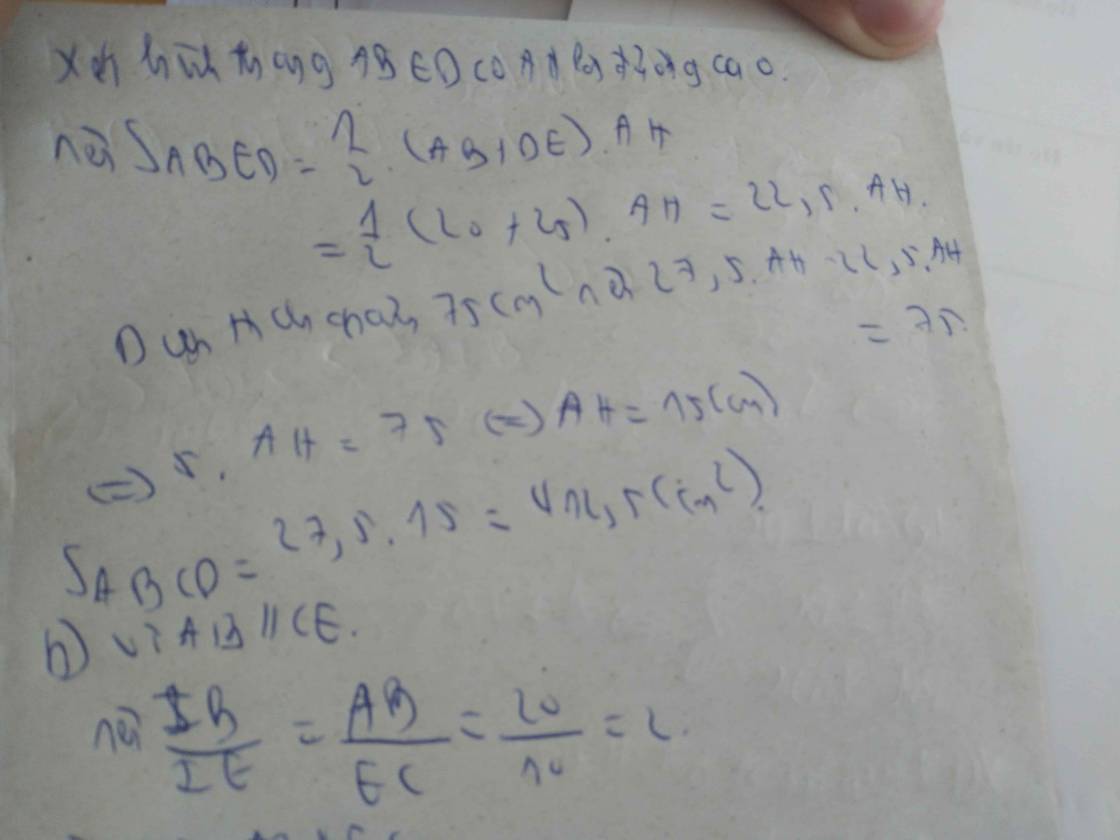 Xét hình thang ABED có AH là đường cao.
nên S_ABED = 1/2 . (AB + DE) . AH
= 1/2 (20 + 25) . AH = 22,5 . AH.
75 cm² nên 27,5 . AH - 22,5 . AH
= 75.
<=> 5 . AH = 75 <=> AH = 15 (cm)
S_ABCD = 27,5 . 15 = 412,5 (cm²).
b) Vì AB // CE.
nên IB/IE = AB/EC = 20/10 = 2.